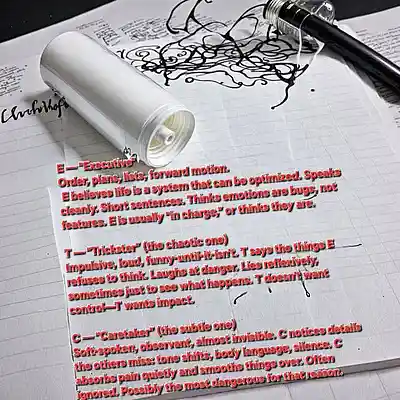 E — "Executive"
Order, plans, lists, forward motion.
E believes life is a system that can be optimized. Speaks
cleanly. Short sentences. Thinks emotions are bugs, not
features. E is usually "in charge," or thinks they are.
T — "Trickster" (the chaotic one)
Impulsive, loud, funny-until-it-isn't. T says the things E
refuses to think. Laughs at danger. Lies reflexively,
sometimes just to see what happens. T doesn't want
control—T wants impact.
C — "Caretaker" (the subtle one)
Soft-spoken, observant, almost invisible. C notices details
the others miss: tone shifts, body language, silence. C
absorbs pain quietly and smooths things over. Often
ignored. Possibly the most dangerous for that reason.